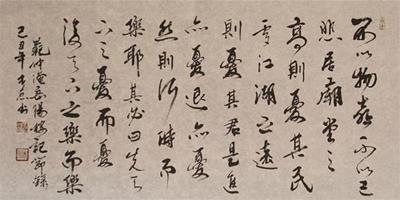 不以物喜不以己
悲居廟堂之
高則憂其民
處江湖之遠
則憂其君是進
亦憂退亦憂
然則何時而
樂耶其必曰先天
下之憂而憂
後天下之樂而樂
範仲淹岳陽樓記節錄
己丑年